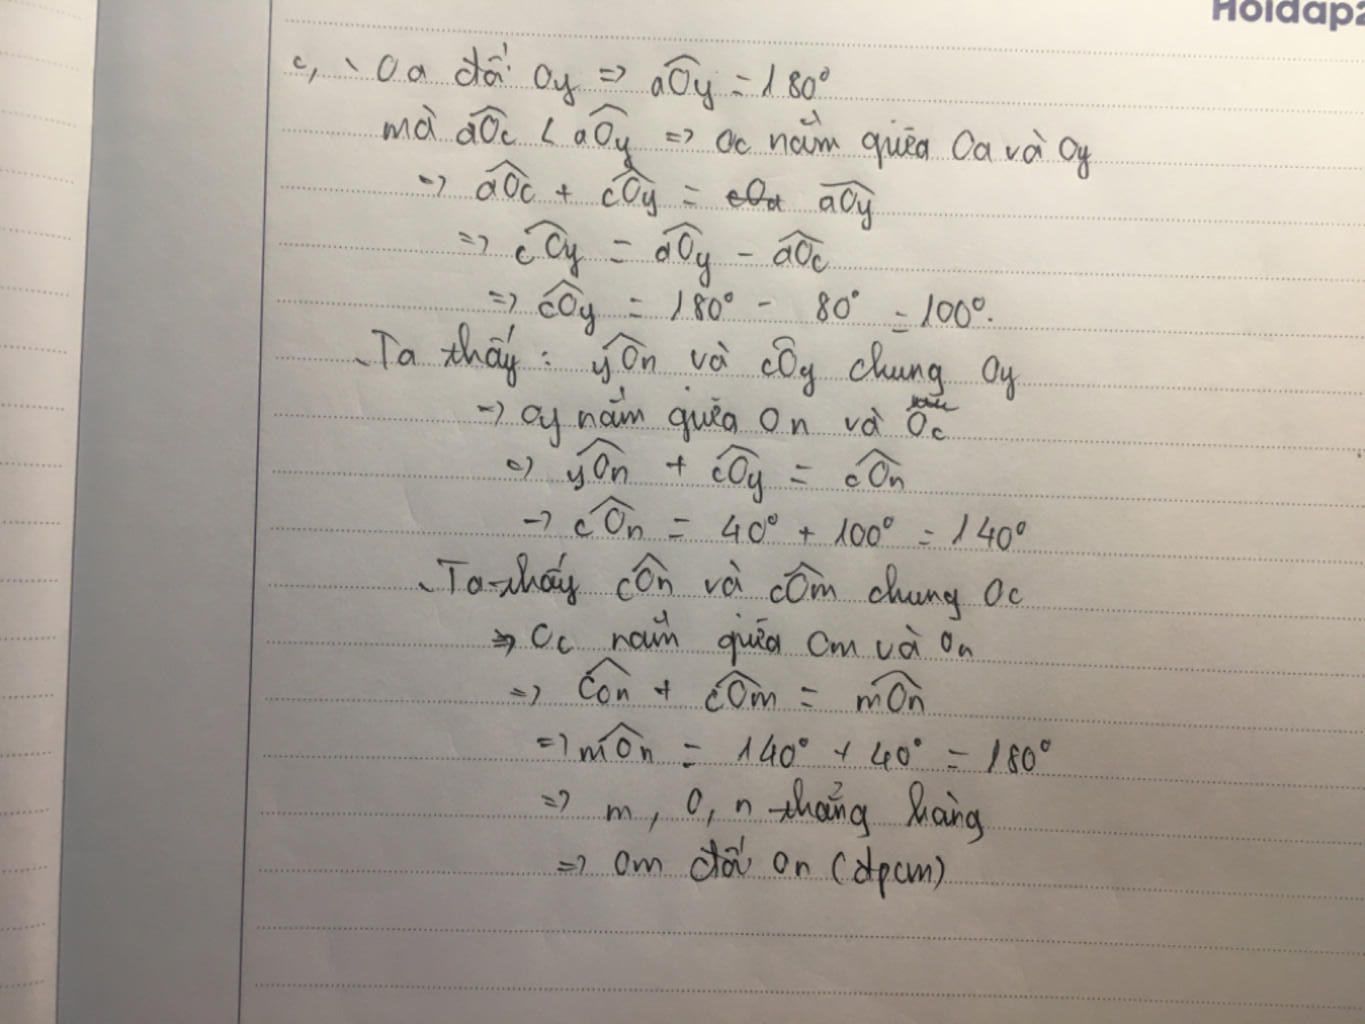 Hoidap2
c, \ Oa đối Oy => aOy = 180°
mà aOc < aOy => Oc nằm giữa Oa và Oy
=> aOc + cOy = aOy
=> cOy = aOy - aOc
=> cOy = 180° - 80° = 100°.
Ta thấy : yOn và cOy chung Oy
=> Oy nằm giữa On và Oc
=> yOn + cOy = cOn
=> cOn = 40° + 100° = 140°
Ta thấy cOn và cOm chung Oc
=> Oc nằm giữa Om và On
=> cOn + cOm = mOn
=> mOn = 140° + 40° = 180°
=> m, O, n thẳng hàng
=> Om đối On (đpcm)